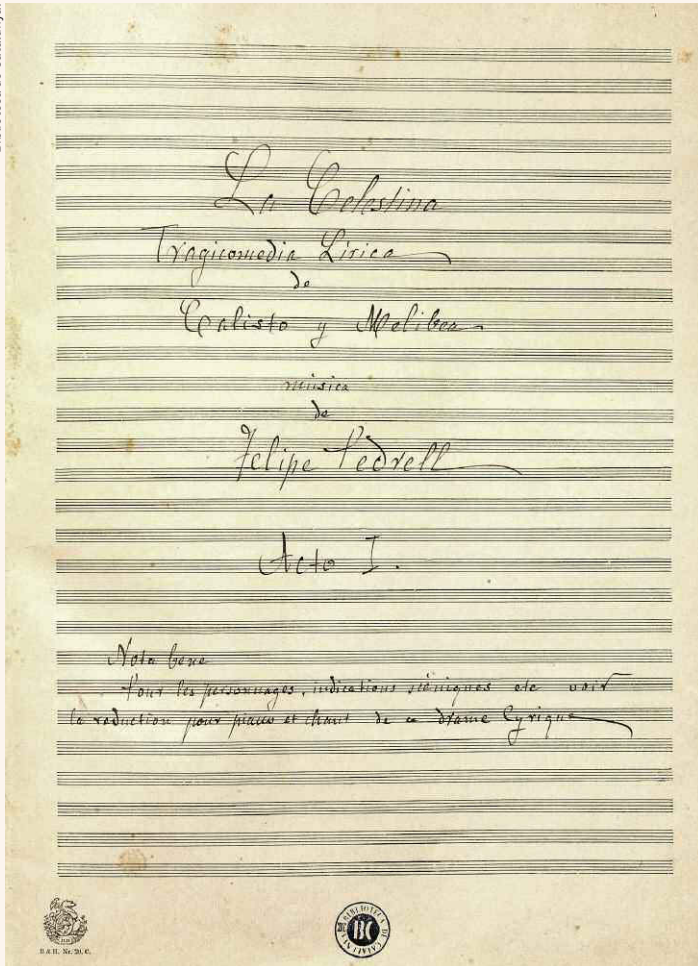 La Celestina
Tragicomedia Lírica
de
Calisto y Melibea
música
de
Felipe Pedrell
Acto I.
Nota bene
Pour les personnages, indications scéniques etc voir
la reduction pour piano et chant de ce drame lyrique
B & H. Nr. 20. C.
BIBLIOTECA DE CATALUNYA
BC